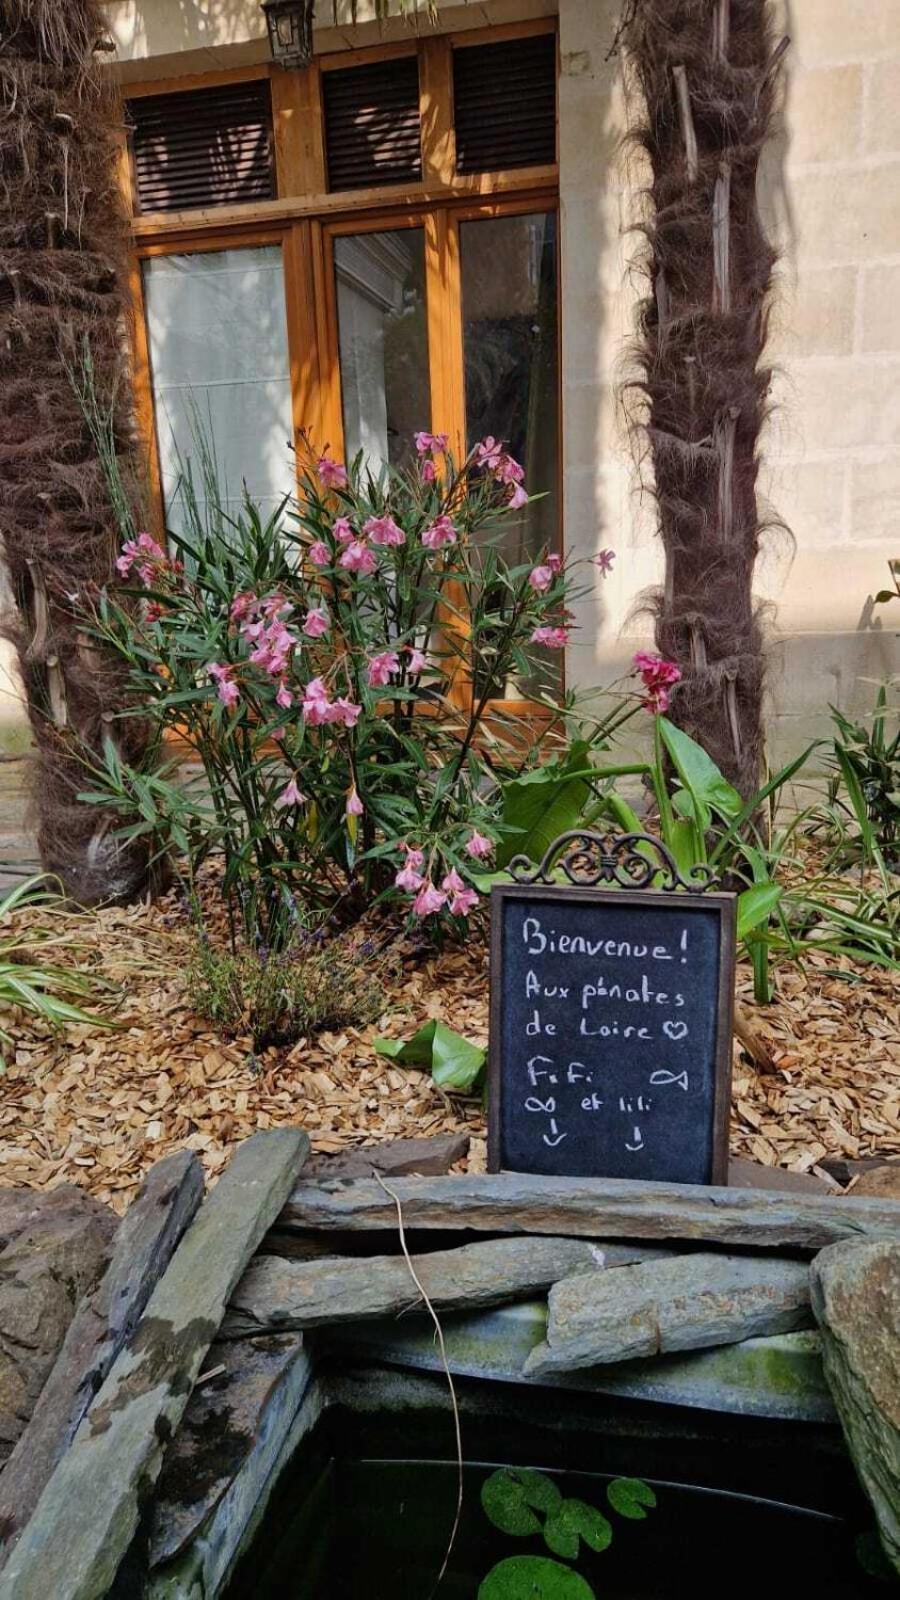 Bienvenue!
Aux pénates
de Loire ♡
Fifi
et lili